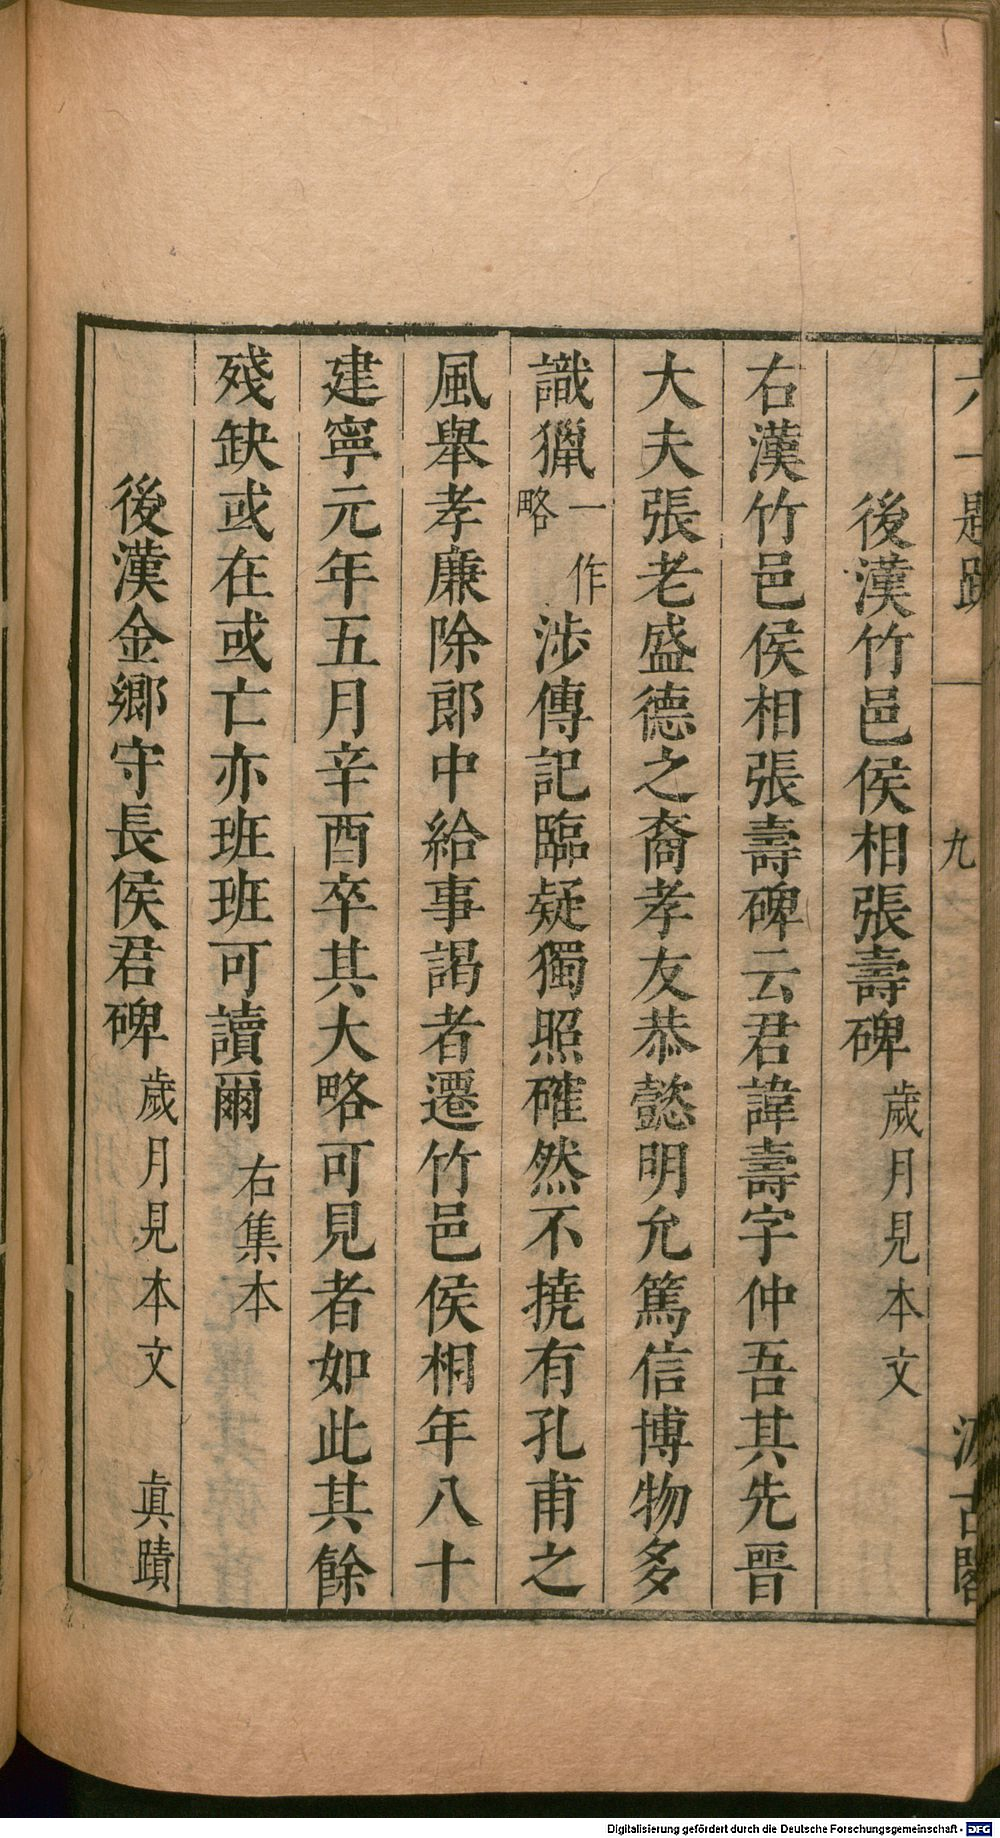 六一題跋 九 汲古閣
後漢竹邑侯相張壽碑 歲月見本文
右漢竹邑侯相張壽碑云君諱壽字仲吾其先晉
大夫張老盛德之裔孝友恭懿明允篤信博物多
識獵一作略涉傳記臨疑獨照確然不撓有孔甫之
風舉孝廉除郎中給事謁者遷竹邑侯相年八十
建寧元年五月辛酉卒其大略可見者如此其餘
殘缺或在或亡亦班班可讀爾 右集本
後漢金鄉守長侯君碑 歲月見本文 眞蹟
Digitalisierung gefördert durch die Deutsche Forschungsgemeinschaft - DFG